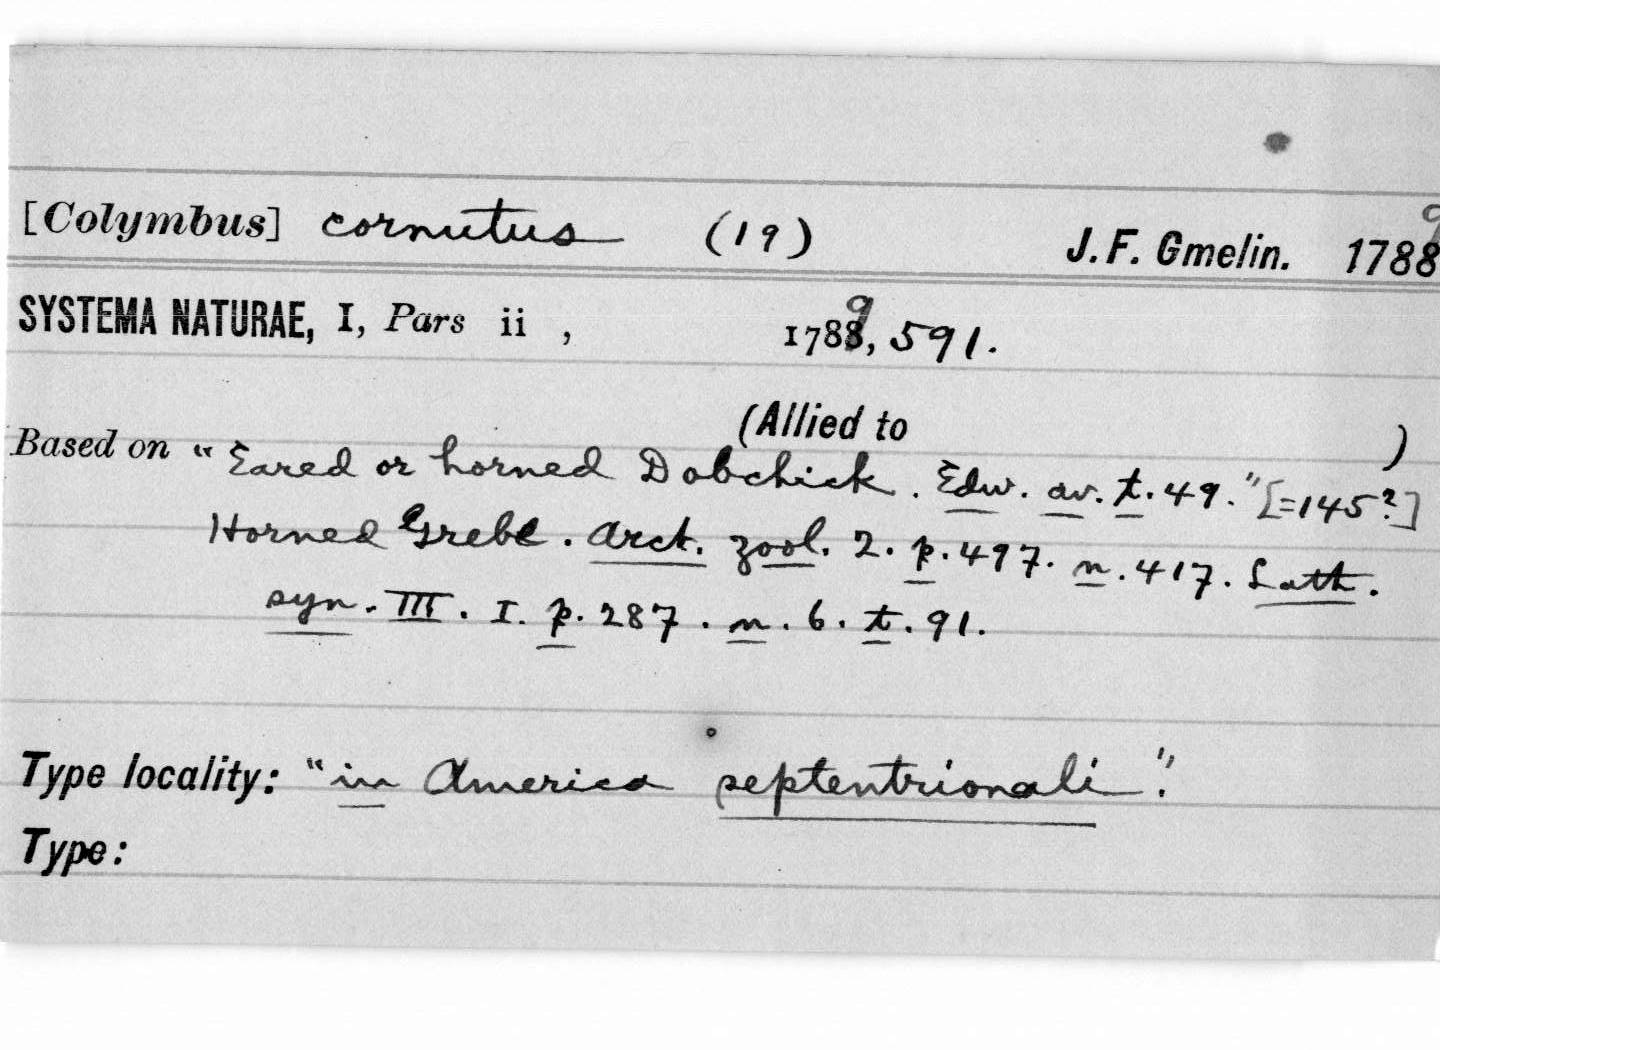 [Colymbus] cornutus (19) J. F. Gmelin. 1789
SYSTEMA NATURAE, I, Pars ii , 1789, 591.
(Allied to )
Based on "Eared or horned Dobchick. Edw. av. t. 49." [=145?]
Horned Grebe. Arct. zool. 2. p. 497. n. 417. Lath.
syn. III. I. p. 287. n. 6. t. 91.
Type locality: "in America septentrionali".
Type: